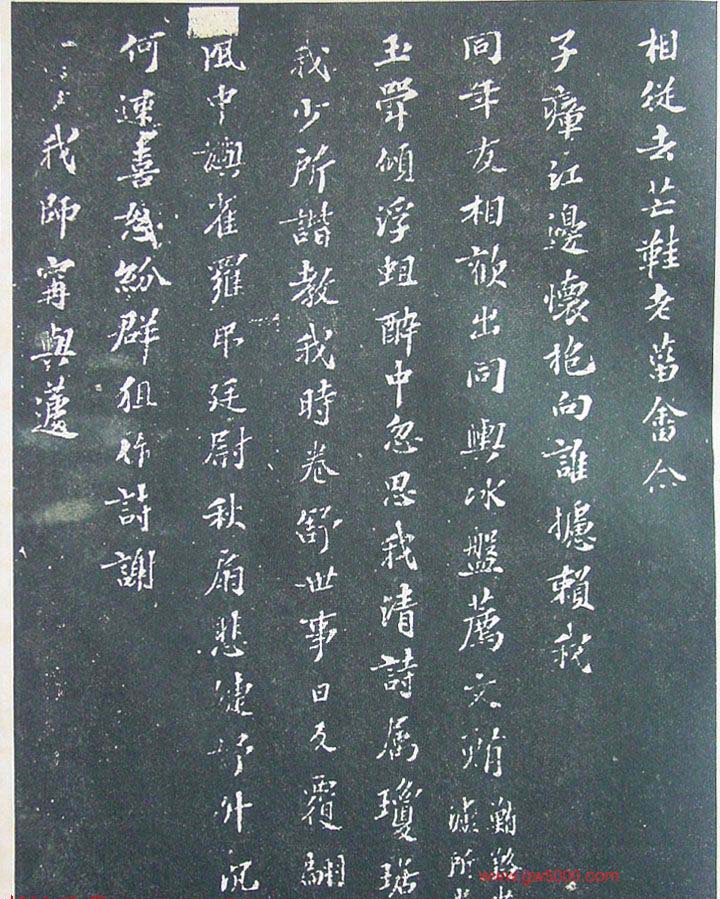 相從去芒鞋老葘畬
子瘴江邊懷抱向誰攄賴我
同年友相歡出同輿冰盤薦文鮪
瀘所
玉斝傾浮蛆醉中忽思我清詩属瓊琚
我少所諧教我時卷舒世事日反覆翩
風中旟雀羅弔廷尉秋扇悲婕妤升沉
何速喜紛群狙作詩謝
我師甯與蘧
www.gw5000.com